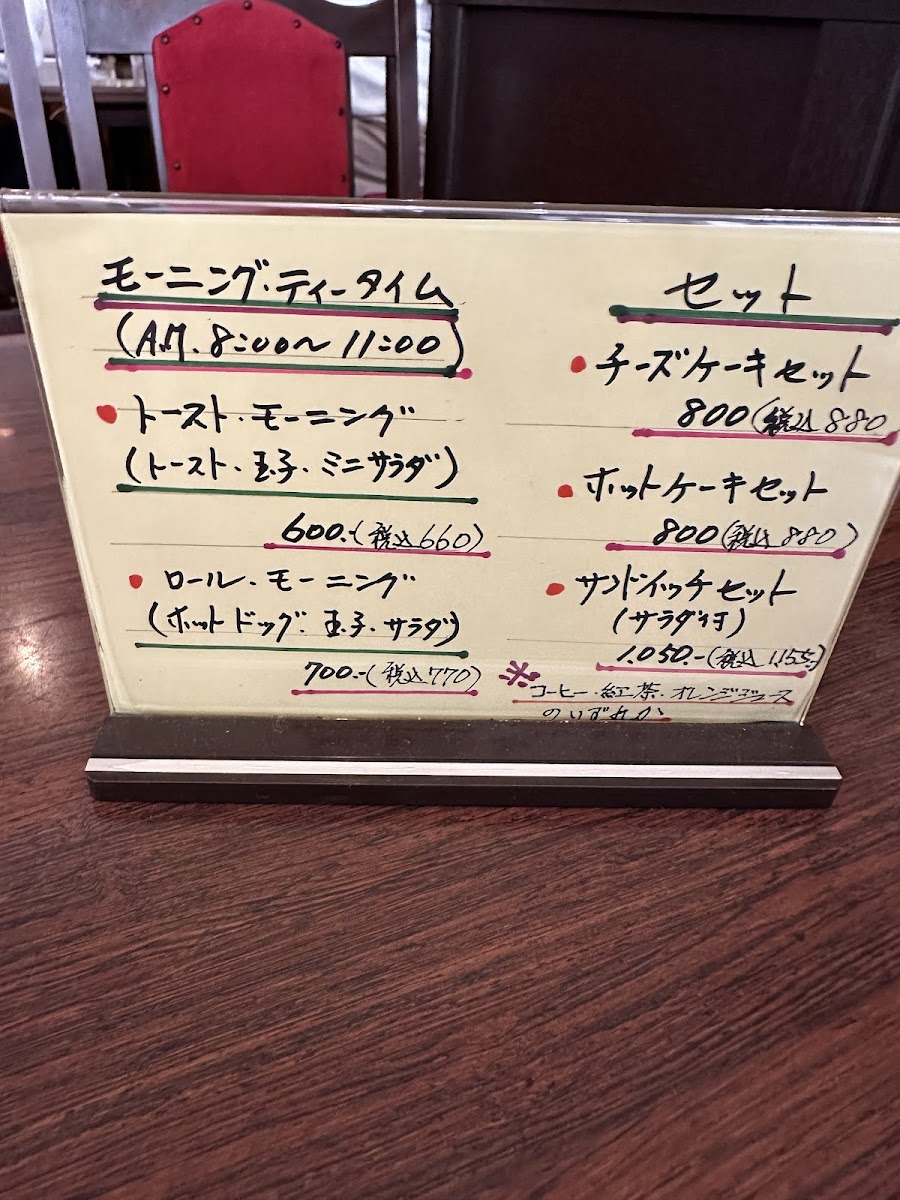 モーニング・ティータイム
(A.M. 8:00〜11:00)
トースト・モーニング
(トースト・玉子・ミニサラダ)
600.-(税込660)
ロール・モーニング
(ホットドッグ・玉子・サラダ)
700.-(税込770)
セット
チーズケーキセット
800(税込880
ホットケーキセット
800(税込880)
サンドイッチセット
(サラダ付)
1.050.-(税込1.155.-)
※コーヒー・紅茶・オレンジジュース
のいずれか